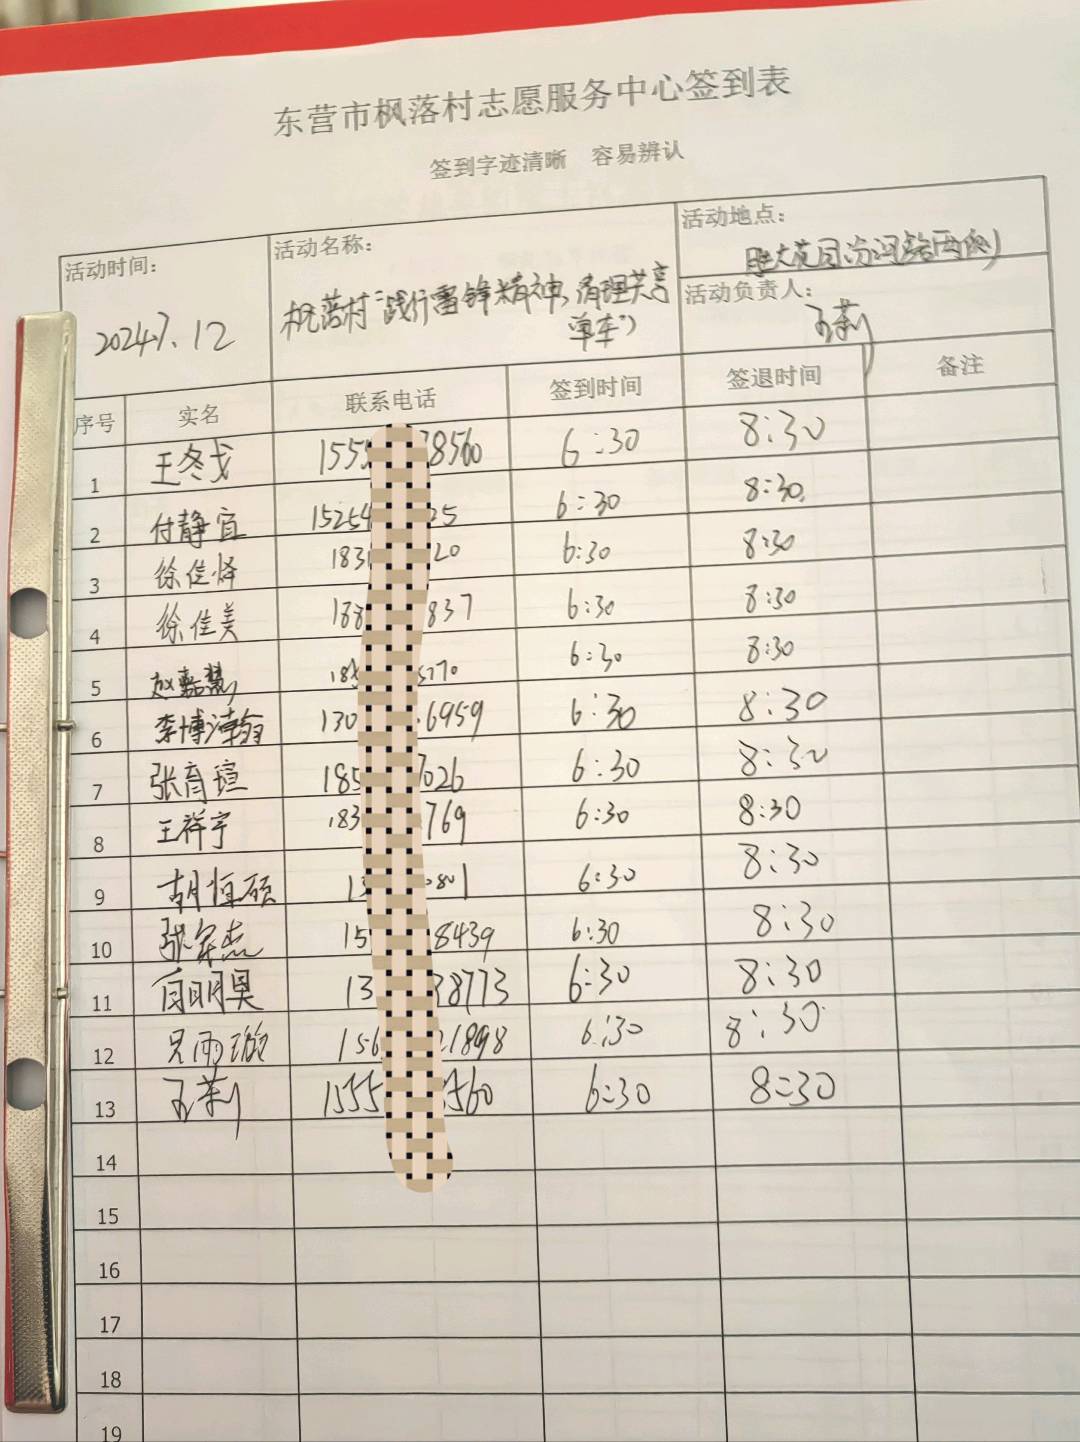 东营市枫落村志愿服务中心签到表
签到字迹清晰 容易辨认
活动时间： 2024.7.12
活动名称： 枫落村“践行雷锋精神，清理共享
单车”
活动地点：
活动负责人： 王莉
序号 实名 联系电话 签到时间 签退时间 备注
1 王冬戈 1555 78560 6:30 8:30
2 付静宜 15254 25 6:30 8:30
3 徐佳怿 183 20 6:30 8:30
4 徐佳美 188 837 6:30 8:30
5 赵嘉慧 18 5770 6:30 8:30
6 李博瀚 130 6959 6:30 8:30
7 张育瑄 185 7026 6:30 8:30
8 王梓宇 183 769 6:30 8:30
9 胡恒硕 13 0801 6:30 8:30
10 张家杰 15 8439 6:30 8:30
11 向明昊 13 38773 6:30 8:30
12 吴雨璇 156 21898 6:30 8:30
13 王莉 1555 8560 6:30 8:30
14
15
16
17
18
19